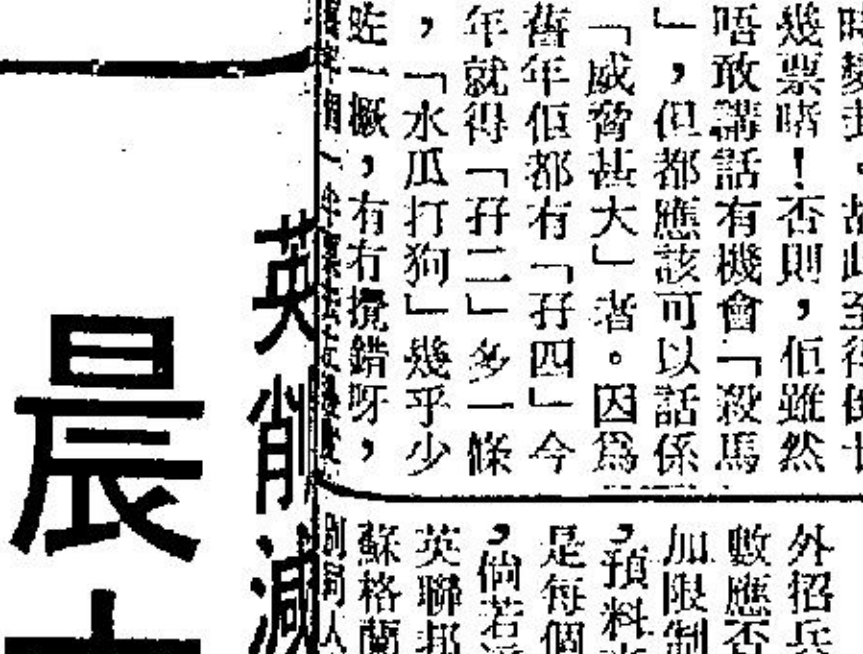 幾票啫！否則，佢雖然
唔敢講話有機會「殺馬
」，但都應該可以話係
「威脅甚大」者。因為
舊年佢都有「孖四」今
年就得「孖二」多一條
，「水瓜打狗」幾乎少
咗一橛，有冇攪錯呀，
外招兵
數應否
加限制
，預料
是每個
，倘若
英聯邦
蘇格蘭
英削減
晨